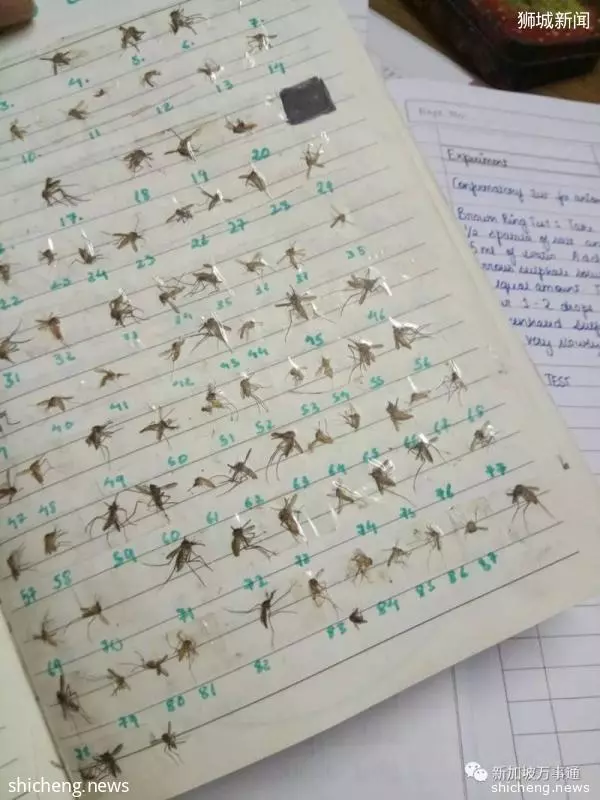 狮城新闻
7.
6.
5.
4.
3.
14
13
12
11
10.
20
19
18
17.
29
28
27
26
23
24
23
22
35
31
36
35
34
33
32
31
46
45
44
43
42
41
40
56
55
54
53
52
51
50
49
48
47
68
67
66
65
64
63
62
61
60
59
58
57
77
76
75
74
73
72
71
70
69
87
86
85
84
83
82
81
80
79
78
Expt. No.
Experiment
Confirmatory Test for
Brown Ring Test : Take
1/2 spatula of salt and
5 ml of water. Add
ferrous sulphate
equal amount.
1-2 drops
very slowly
TEST
新加坡万事通
shicheng.news
shicheng.news